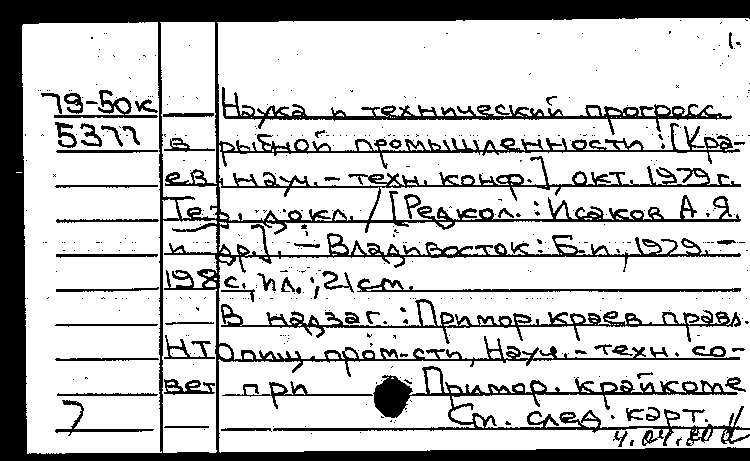 1.
79-50к Наука и технический прогресс
5377 в рыбной промышленности : [Кра-
ев. науч.-техн. конф.], окт. 1979 г.
Тез. докл. / [Редкол. : Исаков А. Я.
и др.]. — Владивосток : Б. и., 1979. —
198 с., ил. ; 21 см.
В надзаг. : Примор. краев. правл.
НТО пищ. пром-сти, Науч.-техн. со-
вет при Примор. крайкоме
См. след. карт.
7
4.04.80